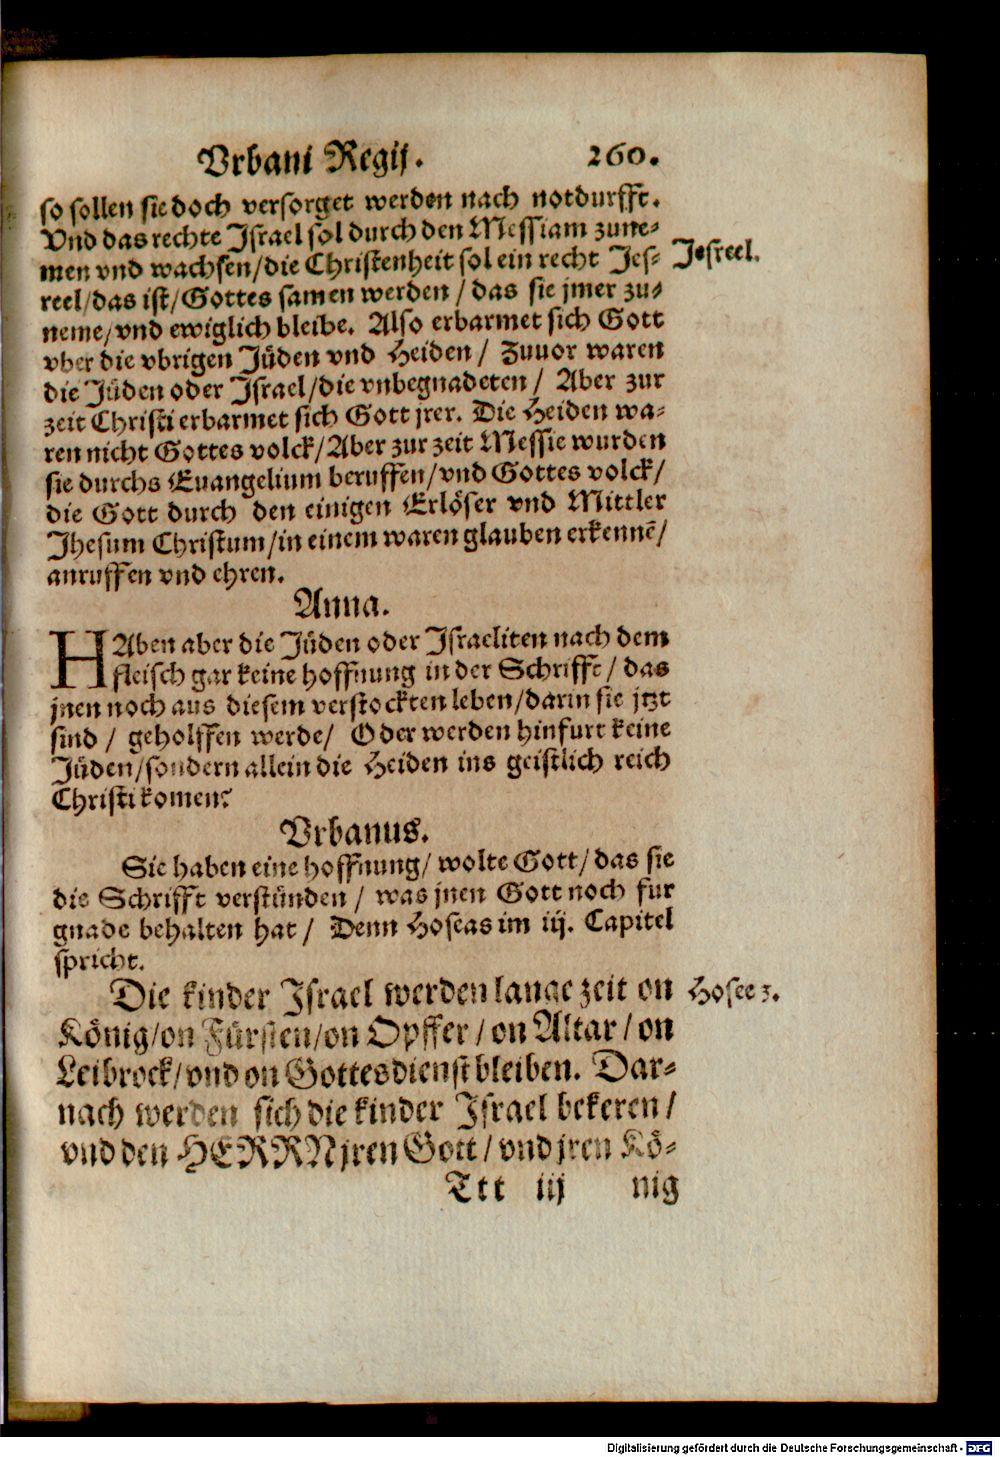 Vrbani Regij. 260.
so sollen sie doch versorget werden nach notdurfft.
Vnd das rechte Israel sol durch den Messiam zune-
men vnd wachsen/die Christenheit sol ein recht Jes- Jesreel.
reel/das ist/Gottes samen werden / das sie jmer zu-
neme/vnd ewiglich bleibe. Also erbarmet sich Gott
vber die vbrigen Jüden vnd Heiden / Zuuor waren
die Jüden oder Israel/die vnbegnadeten / Aber zur
zeit Christi erbarmet sich Gott jrer. Die Heiden wa-
ren nicht Gottes volck/Aber zur zeit Messie wurden
sie durchs Euangelium beruffen/vnd Gottes volck/
die Gott durch den einigen Erlöser vnd Mittler
Jhesum Christum/in einem waren glauben erkennē/
anruffen vnd ehren.
Anna.
HAben aber die Jüden oder Israeliten nach dem
fleisch gar keine hoffnung in der Schrifft/ das
jnen noch aus diesem verstockten leben/darin sie jtzt
sind / geholffen werde/ Oder werden hinfurt keine
Jüden/sondern allein die Heiden ins geistlich reich
Christi komen?
Vrbanus.
Sie haben eine hoffnung/ wolte Gott/ das sie
die Schrifft verstünden / was jnen Gott noch fur
gnade behalten hat / Denn Hoseas im iij. Capitel
spricht.
Die kinder Israel werden lange zeit on Hosee 3.
König/on Fürsten/on Opffer / on Altar / on
Leibrock/vnd on Gottesdienst bleiben. Dar-
nach werden sich die kinder Israel bekeren /
vnd den HERRN jren Gott / vnd jren Kö-
Ttt iij nig
Digitalisierung gefördert durch die Deutsche Forschungsgemeinschaft - DFG